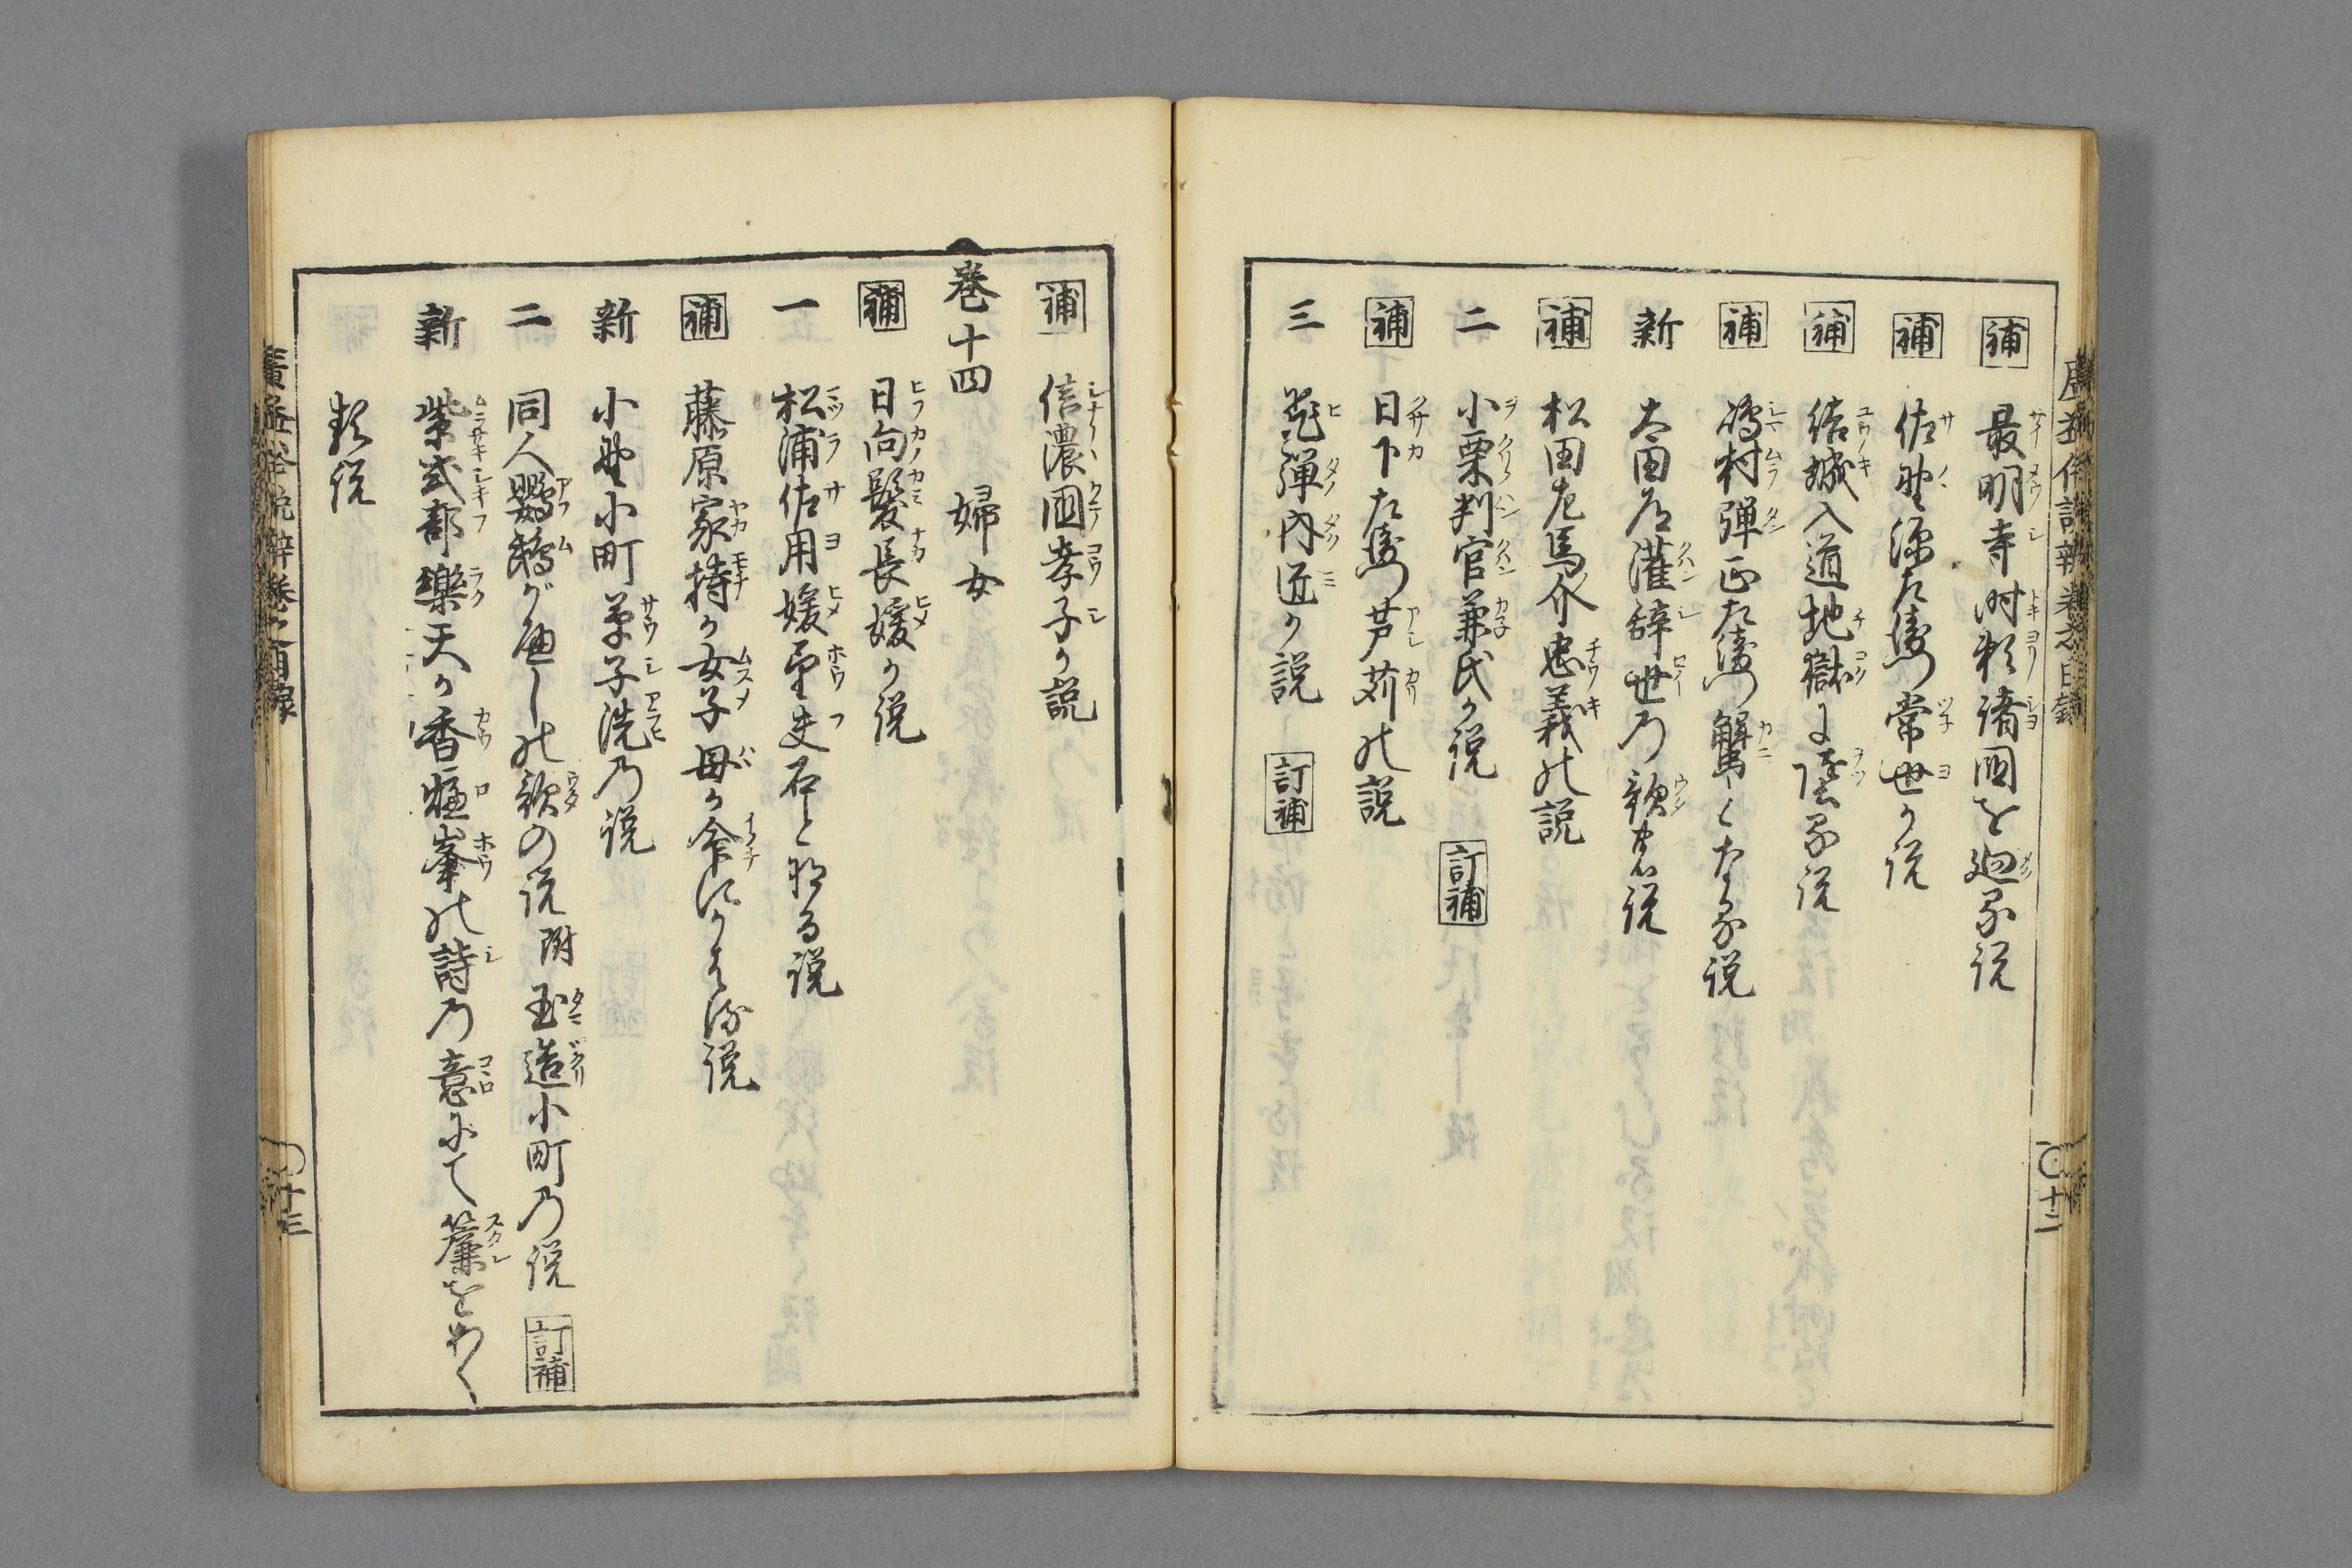 補 最明寺時頼諸國を廻る説
補 佐野源左衛門常世が説
補 結城入道地獄に墮る説
補 嶋村弾正左衛門蟹となる説
新 太田道灌辞世乃歌の説
補 松田左馬介忠義の説
二 小栗判官兼氏が説 訂補
補 日下左衛門芦苅の説
三 飛彈内匠が説 訂補
補 信濃國孝子が説
巻十四 婦女
補 日向髪長媛が説
一 松浦佐用媛望夫石と化る説
補 藤原家持が女子母が命にかはる説
新 小野小町草子洗乃説
二 同人鸚鵡がへしの歌の説 附 玉造小町乃説 訂補
新 紫式部樂天が香爐峯の詩乃意にて簾をあぐ
類説
廣益俗説辯巻之目録
十二
十三